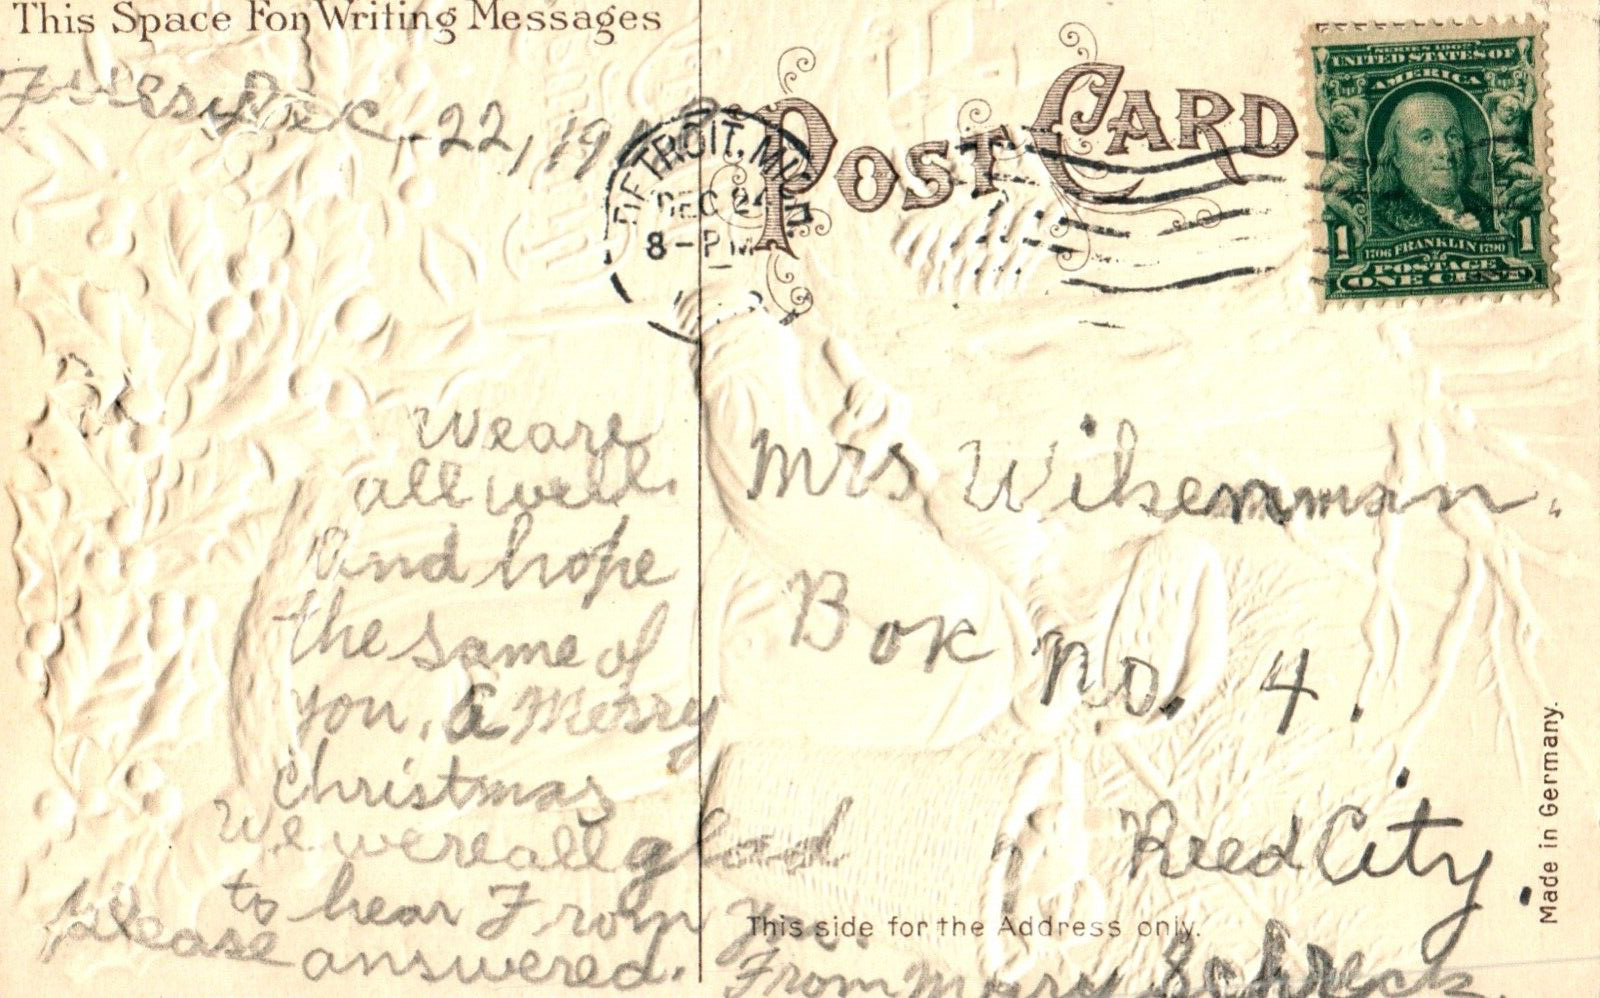 This Space For Writing Messages
Dec 22, 19
We are
all well.
and hope
the same of
you. a Merry
Christmas
We were all glad
to hear From you.
please answered.
From Mary Schreck.
POST CARD
DETROIT, MICH.
DEC 24
8-PM
SERIES 1902
UNITED STATES OF
AMERICA
1706 FRANKLIN 1790
1 1
POSTAGE
ONE CENT
Mrs
Box
No. 4.
Reed City.
This side for the Address only.
Made in Germany.